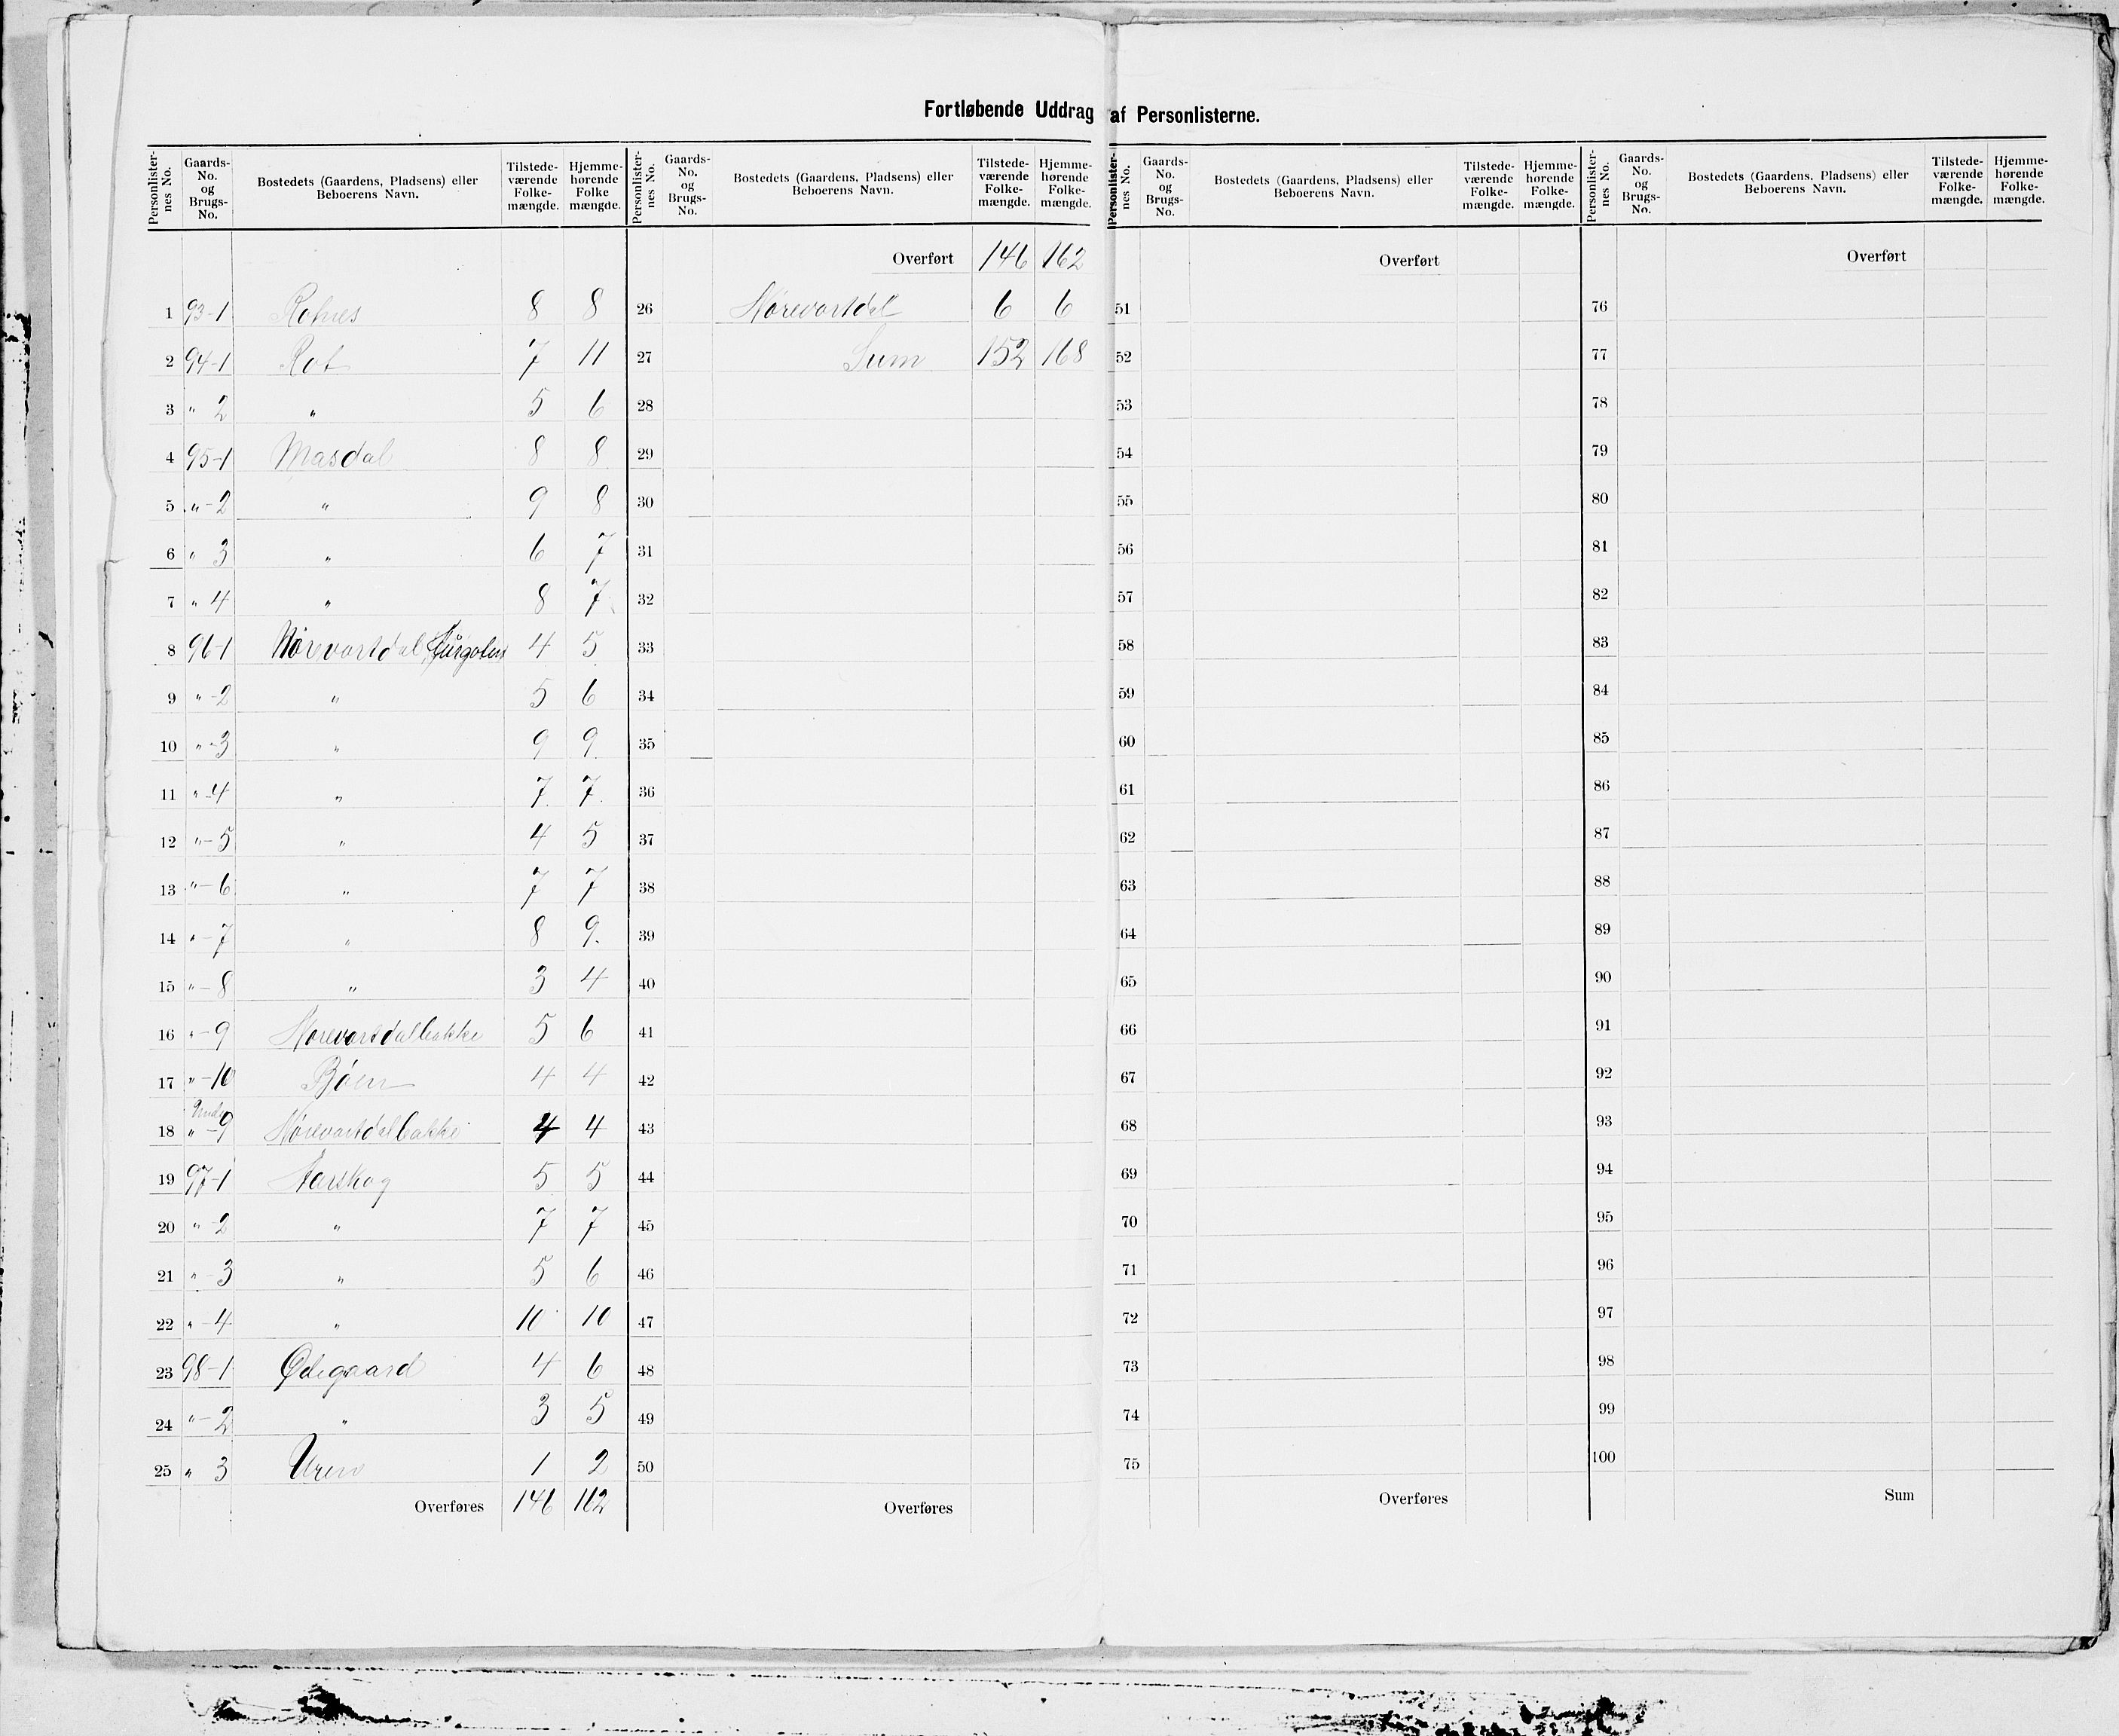 Fortløbende Uddrag af Personlisterne.
Personlister-nes No. | Gaards-No. og Brugs-No. | Bostedets (Gaardens, Pladsens) eller Beboerens Navn. | Tilstede-værende Folke-mængde. | Hjemme-hørende Folke mængde.
1 93-1 Rotnes 8 8
2 94-1 Rot 7 11
3 " 2 " 5 6
4 95-1 Masdal 8 8
5 "-2 " 9 8
6 " 3 " 6 7
7 " 4 " 8 7
8 96-1 Nørevartdal 4 5
9 "-2 " 5 6
10 "-3 " 9 9
11 "-4 " 7 7
12 "-5 " 4 5
13 "-6 " 7 7
14 "-7 " 8 9.
15 "-8 " 3 4
16 "-9 Nørevartdalbakke 5 6
17 "-10 Bøen 4 4
18 "-9 Nørevartdalbakke 4 4
19 97-1 Aarskog 5 5
20 "-2 " 7 7
21 "-3 " 5 6
22 "-4 " 10 10
23 98-1 Ødegaard 4 6
24 "-2 " 3 5
25 " 3 Uren 1 2
Overføres 146 162
Personlister-nes No. | Gaards-No. og Brugs-No. | Bostedets (Gaardens, Pladsens) eller Beboerens Navn. | Tilstede-værende Folke-mængde. | Hjemme-hørende Folke-mængde.
Overført 146 162
26 Nørevartdal 6 6
27 Sum 152 168
28
29
30
31
32
33
34
35
36
37
38
39
40
41
42
43
44
45
46
47
48
49
50
Overføres
Personlister-nes No. | Gaards-No. og Brugs-No. | Bostedets (Gaardens, Pladsens) eller Beboerens Navn. | Tilstede-værende Folke-mængde. | Hjemme-hørende Folke-mængde.
Overført
51
52
53
54
55
56
57
58
59
60
61
62
63
64
65
66
67
68
69
70
71
72
73
74
75
Overføres
Personlister-nes No. | Gaards-No. og Brugs-No. | Bostedets (Gaardens, Pladsens) eller Beboerens Navn. | Tilstede-værende Folke-mængde. | Hjemme-hørende Folke-mængde.
Overført
76
77
78
79
80
81
82
83
84
85
86
87
88
89
90
91
92
93
94
95
96
97
98
99
100
Sum